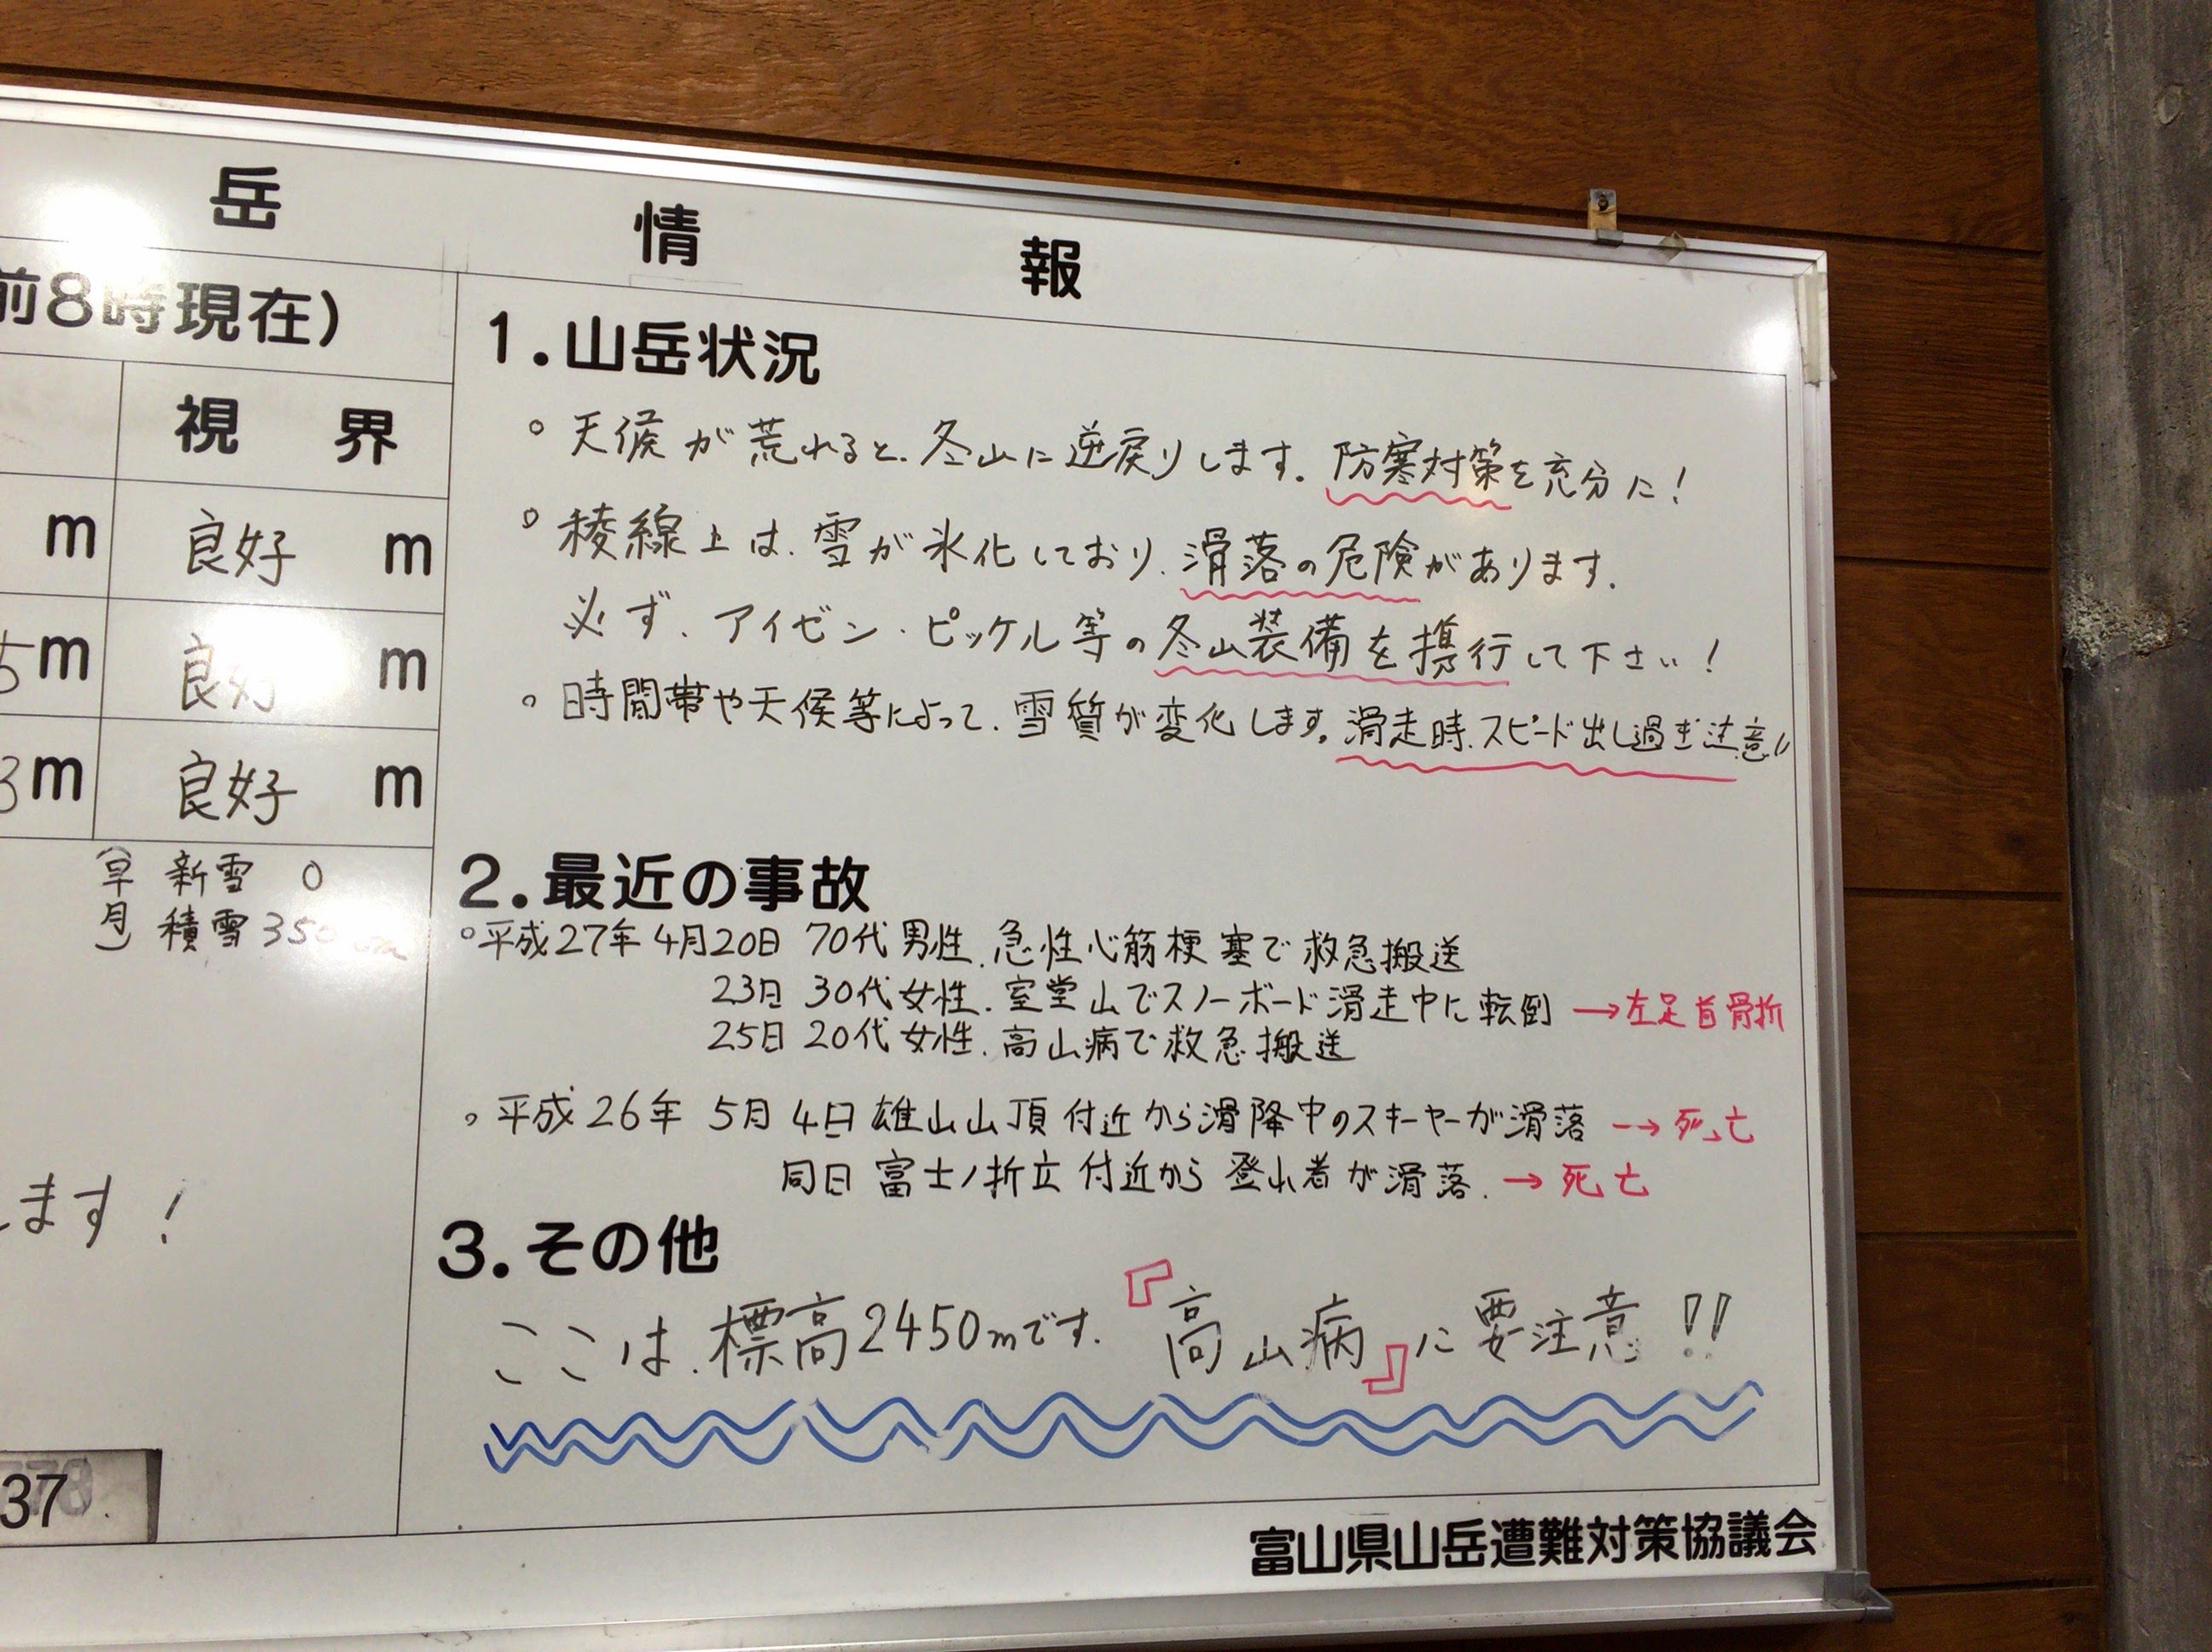 岳 情 報
前8時現在)
視 界
m 良好 m
5m 良好 m
3m 良好 m
(早月) 新雪 0
積雪 350cm
ます!
37
1.山岳状況
○天候が荒れると、冬山に逆戻りします。防寒対策を充分に!
○稜線上は、雪が氷化しており、滑落の危険があります。
必ず、アイゼン・ピッケル等の冬山装備を携行して下さい!
○時間帯や天候等によって、雪質が変化します。滑走時、スピード出し過ぎ注意!!
2.最近の事故
○平成27年4月20日 70代男性、急性心筋梗塞で救急搬送
23日 30代女性、室堂山でスノーボード滑走中に転倒→左足首骨折
25日 20代女性、高山病で救急搬送
○平成26年 5月4日 雄山山頂付近から滑降中のスキーヤーが滑落→死亡
同日 富士ノ折立付近から登山者が滑落。→死亡
3.その他
ここは、標高2450mです。『高山病』に要注意!!
富山県山岳遭難対策協議会